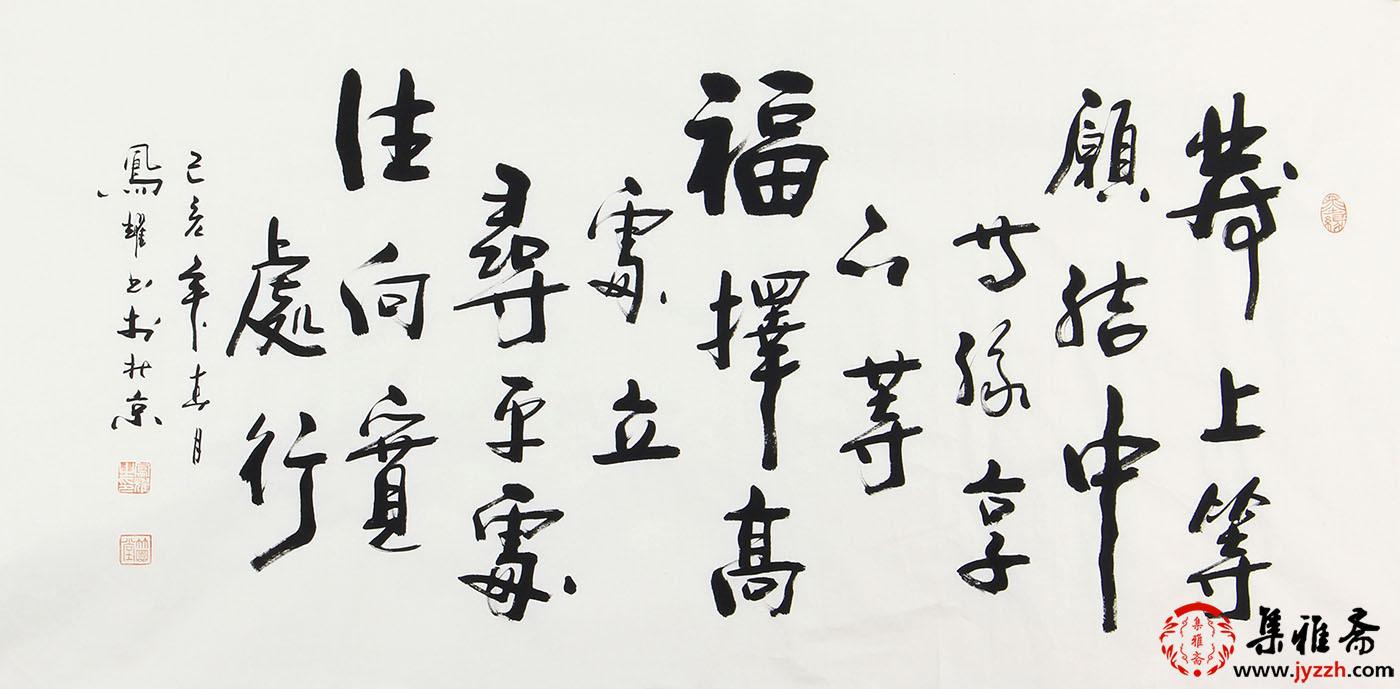 發上等
願結中
等緣享
下等
福擇高
處立
尋平處
住向寬
處行
己亥年春月
鳳耀书於北京
集雅斋
集雅斋
www.jyzzh.com